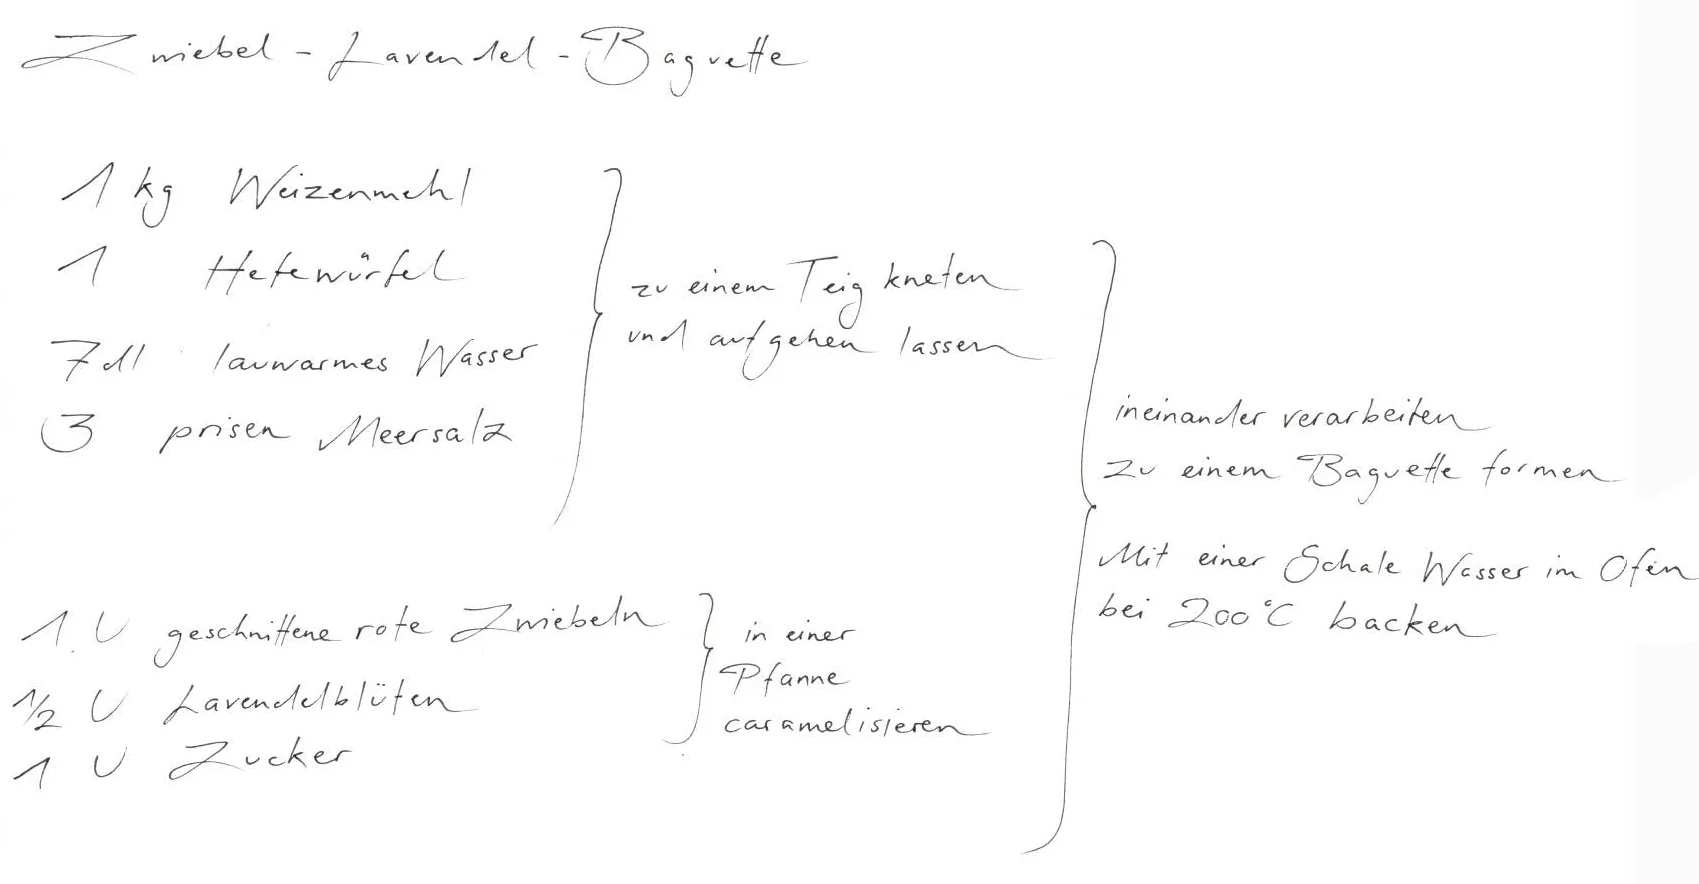 Zwiebel - Lavendel - Baguette
1 kg Weizenmehl
1 Hefewürfel
7 dl lauwarmes Wasser
3 prisen Meersalz
zu einem Teig kneten
und aufgehen lassen
1 U geschnittene rote Zwiebeln
1/2 U Lavendelblüten
1 U Zucker
in einer
Pfanne
caramelisieren
ineinander verarbeiten
zu einem Baguette formen
Mit einer Schale Wasser im Ofen
bei 200°C backen